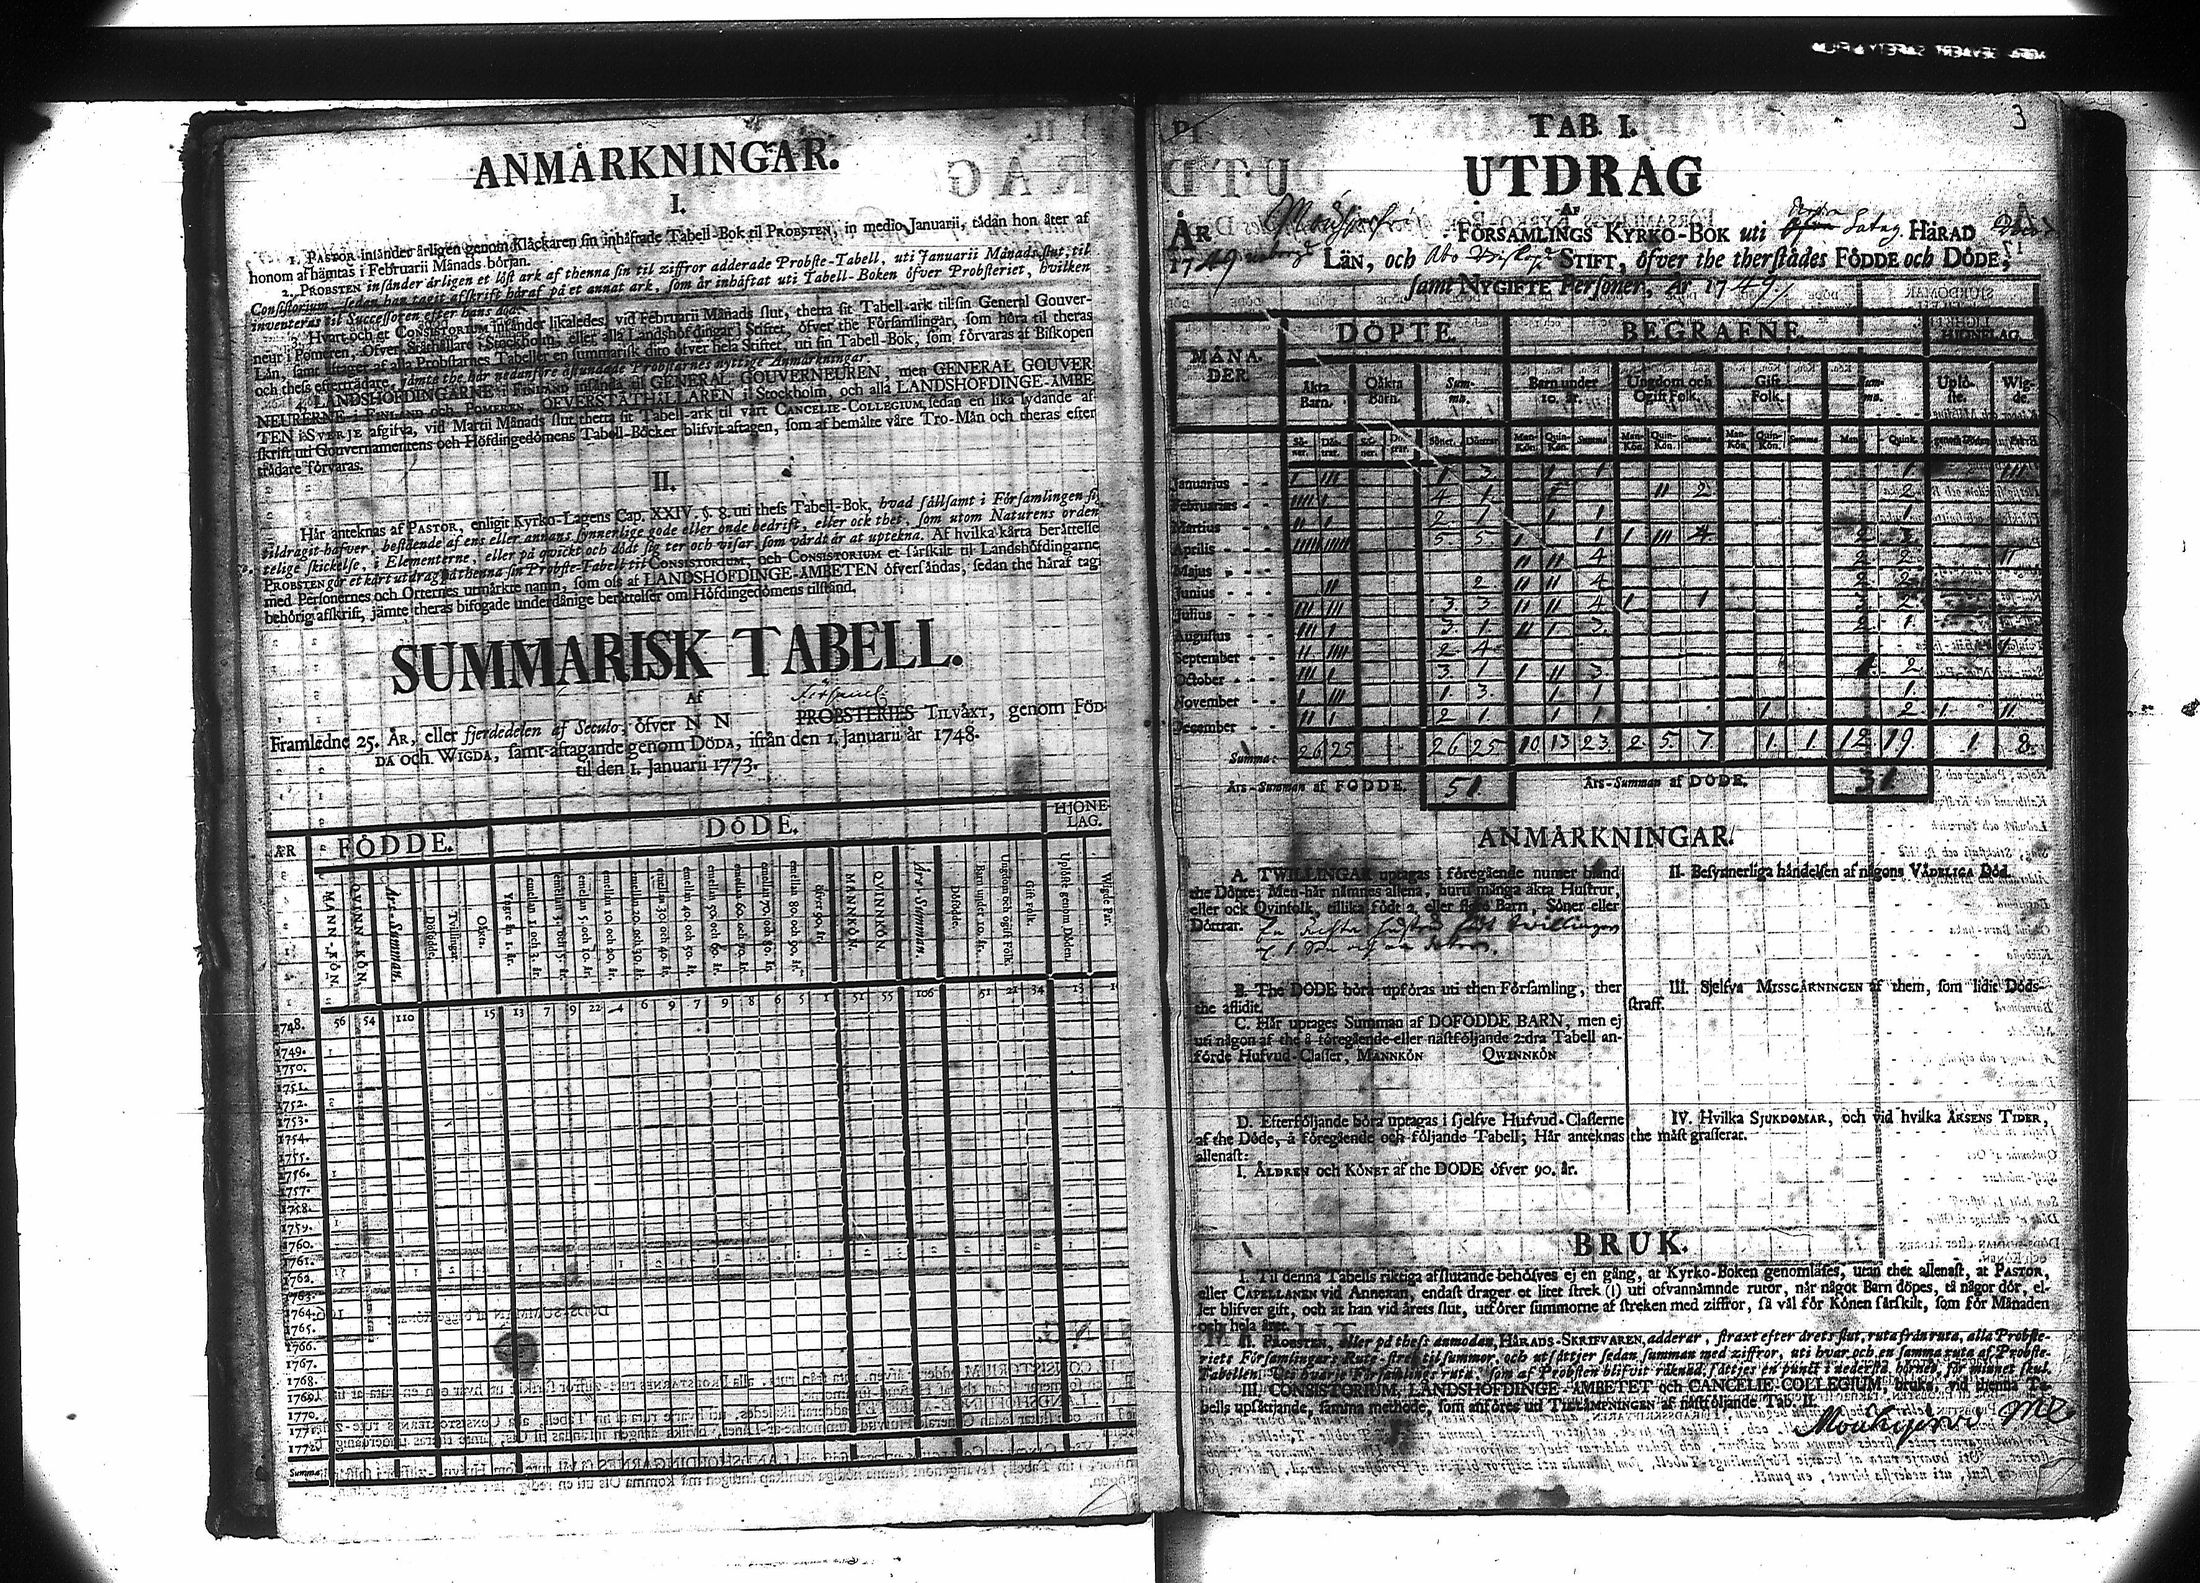 ANMÅRKNINGAR.
I.
1. PASTOR insänder årligen genom Klåckaren sin inhäftade Tabell-Bok til PROBSTEN, in medio Januarii, tådån hon åter af
honom afhämtas i Februarii Månads början.
2. PROBSTEN insänder årligen et löst ark af thenna sin til ziffror adderade Probste-Tabell, uti Januarii Månads slut, til
Consistorium, sedan han tagit afskrift håraf på et annat ark, som är inhäftat uti Tabell-Boken öfver Probsteriet, hvilken
inventeras til Successoren efter hans död.
3. Hvart och et CONSISTORIUM insänder likaledes, vid Februarii Månads slut, thetta sit Tabell-ark til sin General Gouver-
neur i Pomeren, Öfver-Ståthållare i Stockholm, eller alla Landshöfdingar i Stiftet, öfver the Församlingar, som höra til theras
Län, samt aftager af alla Probstarnes Tabeller en summarisk dito öfver hela Stiftet, uti sin Tabell-Bok, som förvaras af Biskopen
och thess efterträdare, jämte the här nedanföre åsundade Probstarnes nyttige Anmärkningar.
4. LANDSHÖFDINGARNE i FINLAND insända til GENERAL GOUVERNEUREN, men GENERAL GOUVER
NEURERNE i FINLAND och POMEREN, ÖFVERSTÅTHÅLLAREN i Stockholm, och alla LANDSHÖFDINGE-ÅMBE
TEN i SVERJE afgifva, vid Martii Månads slut, thetta sit Tabell-ark til vårt CANCELIE-COLLEGIUM, sedan en lika lydande af
skrift uti Gouvernamentens och Höfdingedömens Tabell-Böcker blifvit aftagen, som af bemälte våre Tro-Män och theras efter
trädare förvaras.
II.
Här anteknas af PASTOR, enligit Kyrko-Lagens Cap. XXIV. §. 8. uti thess Tabell-Bok, hvad sällsamt i Församlingen sig
tildragit hafver, bestående af ens eller annans synnerlige gode eller onde bedrift, eller ock thet, som utom Naturens orden
telige skickelse, i Elementerne, eller på qvickt och dödt sig ter och visar, som värdt är at uptekna. Af hvilka korta berättelser
PROBSTEN gör et kort utdrag på thenna sin Probste-Tabell til CONSISTORIUM, och CONSISTORIUM et särskilt til Landshöfdingarne
med Personernes och Orternes utmärkte namn, som oss af LANDSHÖFDINGE-ÅMBETEN öfversändas, sedan the häraf tagit
behörig afskrift, jämte theras bifogade underdånige berättelser om Höfdingedömens tilstånd.
SUMMARISK TABELL.
Af
Framledne 25. ÅR, eller fjerdedelen af Seculo, öfver N N PROBSTERIES TILVÄXT, genom FÖD-
DA och WIGDA, samt aftagande genom DÖDA, ifrån den 1. Januarii år 1748.
til den 1. Januarii 1773.
ÅR FÖDDE. DÖDE. HJONE-LAG.
MANN-KÖN. QVINN-KÖN. Års-Summan. Dödfödde. Tvillingar. Oäkta. Yngre än 1. år. emellan 1. och 3. år. emellan 3. och 5. år. emellan 5. och 10. år. emellan 10 och 20. år. emellan 20. och 30. år. emellan 30. och 40. år. emellan 40. och 50. år. emellan 50. och 60. år. emellan 60. och 70. år. emellan 70. och 80. år. emellan 80. och 90. år. öfver 90. år. MANNKÖN. QVINNKÖN. Års-Summan. Dödfödde. Barn under 10. år. Ungdom och ogift Folk. Gift Folk. Uplöste genom Döden. Wigde Par.
1748. 56 54 110 15 13 7 9 22 4 6 9 7 9 8 6 5 1 51 55 106 51 21 34 13
1749.
1750.
1751.
1752.
1753.
1754.
1755.
1756.
1757.
1758.
1759.
1760.
1761.
1762.
1763.
1764.
1765.
1766.
1767.
1768.
1769.
1770.
1771.
1772.
Summa
3
TAB. I.
UTDRAG
AF
ÅR FÖRSAMLINGS KYRKO-BOK uti HÄRAD
1749 LÄN, och Åbo STIFT, öfver the therstädes FÖDDE och DÖDE,
samt NYGIFTE Personer, År 1749.
MÅNADER DÖPTE. BEGRAFNE. HJONELAG.
Äkta Barn. Oäkta Barn. Summa. Barn under 10. år. Ungdom och Ogift Folk. Gift Folk. Summa. Uplöste. Wigde.
Söner. Döttrar. Söner. Döttrar. Söner. Döttrar. Man-Kön. Quin-Kön. Summa Man-Kön. Quin-Kön. Summa Man-Kön. Quin-Kön. Summa Man. Quink. genom Döden.
Januarius - - I III 1 3 1 1 1 III
Februarius - - IIII I 4 1 II 2 2
Martius - - II I 2 1 1 1 1
Aprilis - - IIIII IIIII 5 5 1 1 1 III 4 2 3
Majus - - II II 4 2 2 II
Junius - - II 2 II II 4 2 2
Julius - - III III 3 3 II II 4 1 1 2
Augustus - - III I 3 1 II 1 3 2 1
September - - II IIII 2 4
October - - III I 3 1 1 II 3 1 2
November - - I III 1 3 1 1 1
December - - II I 2 1 1 1 1 2 1 II
Summa: 26 25 26 25 10 13 23 2 5 7 1 1 12 19 1 8
Års-Summan af FÖDDE. 51 Års-Summan af DÖDE. 31
ANMÅRKNINGAR.
A. TWILLINGAR uptagas i föregående numer bland
the Döpte; Men här nämnes allena, huru många äkta Hustrur,
eller ock Qvinfolk, tillika födt 2. eller flere Barn, Söner eller
Döttrar. En ächta hustru födt Twillingar
B. The DÖDE böra upföras uti then Församling, ther
the aflidit.
C. Här uptages Summan af DÖFÖDDE BARN, men ej
uti någon af the å föregående eller nästföljande 2:dra Tabell an-
förde Hufvud-Classer, MANNKÖN QWINNKÖN
D. Efterföljande böra uptagas i sjelfve Hufvud-Classerne
af the Döde, å föregående och följande Tabell; Här anteknas
allenast:
I. ÅLDREN och KÖNET af the DÖDE öfver 90. år.
II. Besynnerliga händelsen af någons VÅDELIGA DÖD.
III. Sjelfva MISSGÄRNINGEN af them, som lidit Döds-
straff.
IV. Hvilka SJUKDOMAR, och vid hvilka ÅRSENS TIDER,
the mäst grasserar.
BRUK.
I. Til denna Tabells riktiga afslutande behöfves ej en gång, at Kyrko-Boken genomläses, utan thet allenast, at PASTOR,
eller CAPELLANEN vid Annexan, endast drager et litet strek (I) uti ofvannämnde rutor, när något Barn döpes, tå någor dör, el-
ler blifver gift, och at han vid årets slut, utförer summorne af streken med ziffror, så väl för Könen särskilt, som för Månaden
och hela året.
II. PROBSTEN, eller på thess anmodan, HÄRADS-SKRIFVAREN, adderar, straxt efter årets slut, ruta från ruta, alla Probste-
riets Församlingars Rute-strek til summor, och utsättjer sedan summan med ziffror, uti hvar och en samma ruta af Probste-
Tabellen: Uti hvarje Församlings ruta, som af Probsten blifvit räknad, sättjes en punct i nedersta hörnet, för minnet skul.
III. CONSISTORIUM, LANDSHÖFDINGE-ÄMBETET och CANCELIE-COLLEGIUM, bruka, vid thenna Ta-
bells upsättjande, samma methode, som anföres uti TILLÄMPNINGEN af nästföljande Tab. II.